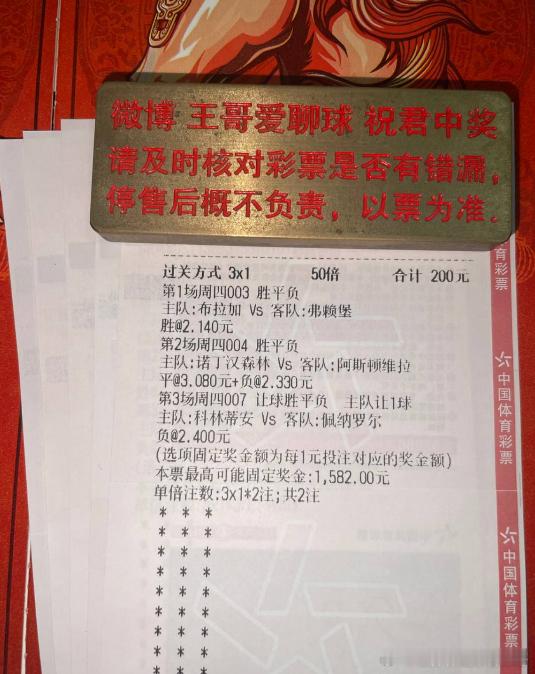 微博 王哥爱聊球 祝君中奖
请及时核对彩票是否有错漏，
停售后概不负责，以票为准.
过关方式 3x1 50倍 合计 200元
第1场周四003 胜平负
主队:布拉加 Vs 客队:弗赖堡
胜@2.140元
第2场周四004 胜平负
主队:诺丁汉森林 Vs 客队:阿斯顿维拉
平@3.080元+负@2.330元
第3场周四007 让球胜平负 主队让1球
主队:科林蒂安 Vs 客队:佩纳罗尔
负@2.400元
(选项固定奖金额为每1元投注对应的奖金额)
本票最高可能固定奖金:1,582.00元
单倍注数:3x1*2注;共2注
* * *
* * *
* * *
* * *
* * *
* * *
* * *
* * *
* * *
育彩票
中国体育彩票
中国体育彩票